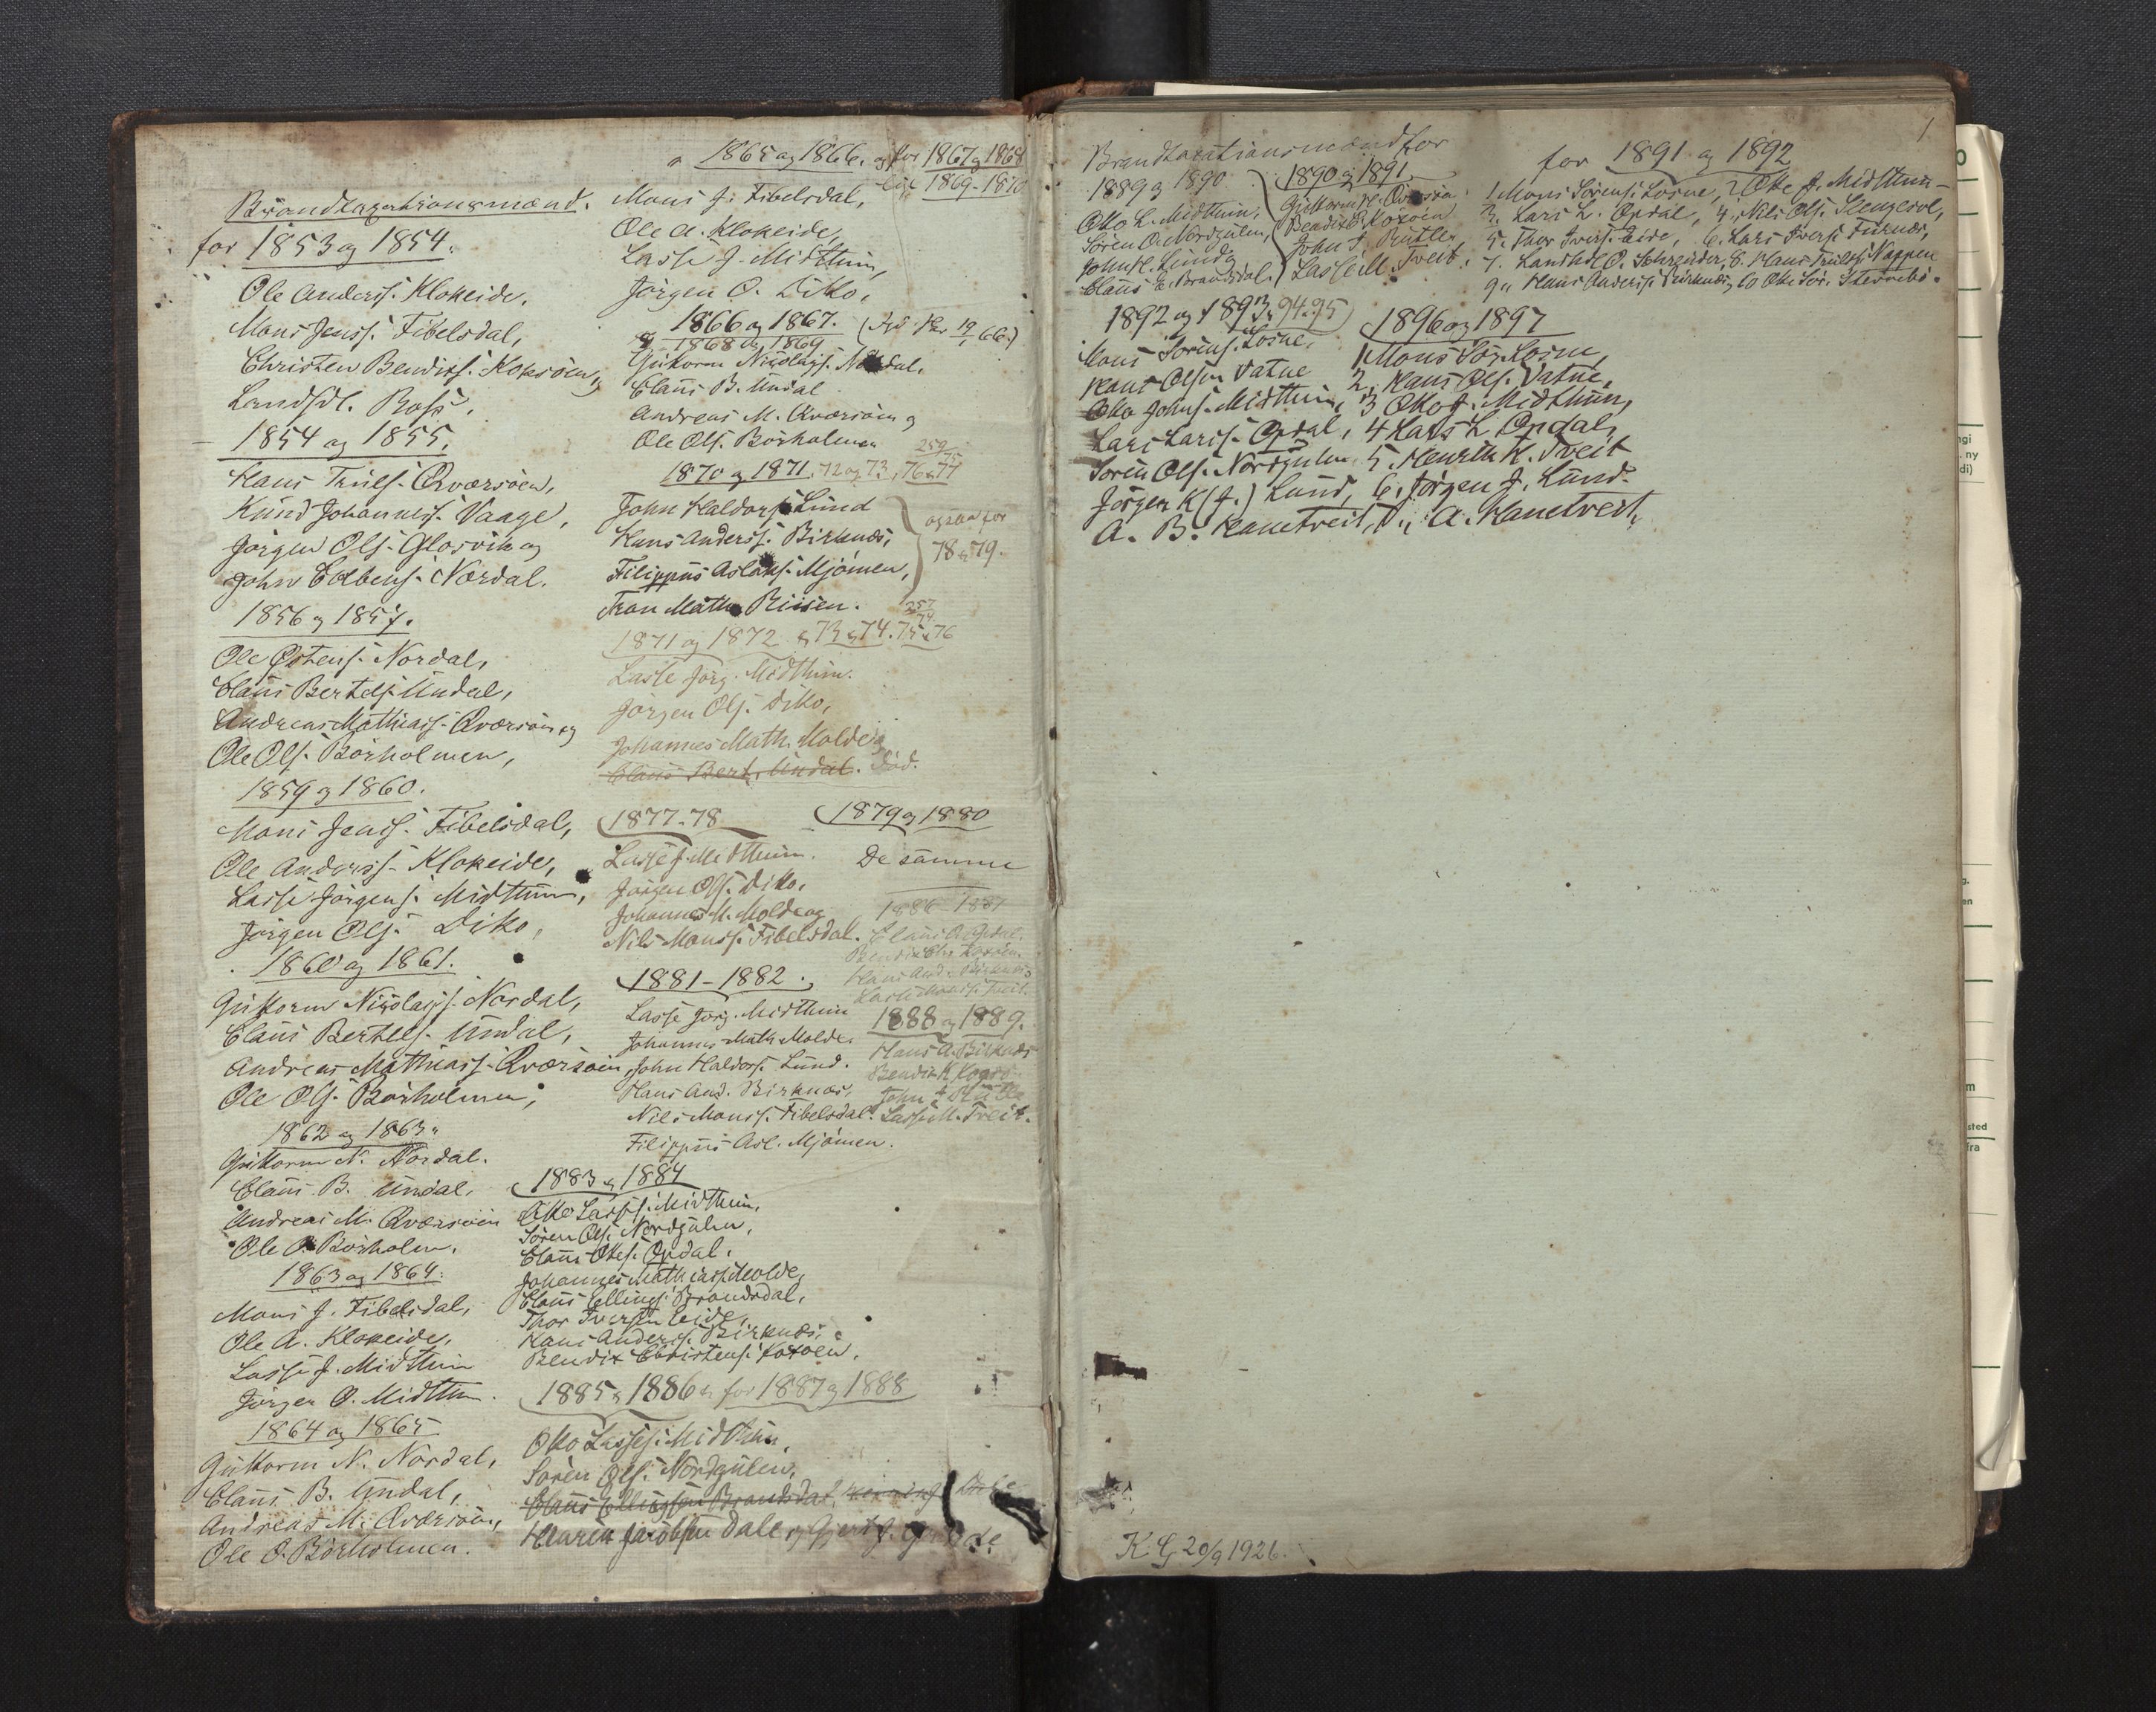 Brandtaxationsmænd.
for 1853 og 1854.
Ole Anderss. Klokeide,
Mons Jenss. Fibelsdal,
Christen Bendixs. Koksöen,
Landhdl. Ross,
1854 og 1855.
Hans Truls. Qværsöen,
Knud Johanness. Vaage,
Jörgen Ols. Glosvik og
John Colbens. Nordal.
1856 og 1857.
Ole Østens. Nordal,
Claus Bertels. Undal,
Andreas Mathiass. Qværsöen og
Ole Ols. Börholmen,
1859 og 1860.
Mons Jenss. Fibelsdal,
Ole Anderss. Klokeide,
Lasse Jörgens. Midthun,
Jörgen Ols. Diko,
1860 og 1861.
Guttorm Nicolays. Nordal,
Claus Bertels. Undal,
Andreas Mathiass. Qværsöen,
Ole Ols. Börholmen,
1862 og 1863.
Guttorm N. Nordal.
Claus B. Undal,
Andreas M. Qværsöen
Ole O. Börholm.
1863 og 1864.
Mons J. Fibelsdal,
Ole A. Klokeide,
Lasse J. Midthun
Jörgen O. Midthun.
1864 og 1865
Guttorm N. Nordal,
Claus B. Undal,
Andreas M. Qværsöen,
Ole O. Börholmen.
1865 og 1866. og for 1867 og 1868
1869-1870
Mons J. Fibelsdal,
Ole A. Klokeide,
Lasse J. Midthun,
Jörgen O. Diko,
1866 og 1867.
og 1868 og 1869
Guttorm Nicolays. Nordal.
Claus B. Undal
Andreas M. Qværsöen og
Ole Ols. Börholmen
1870 og 1871. 72 og 73, 76 & 77
John Haldors. Lund
Hans Anderss. Birknæs,
Filippus Aslaks. Mjömen,
ogsaa for
78 & 79.
1871 og 1872 & 73 & 74. 75 & 76
Lasse Jörg. Midthun.
Jörgen Ols. Diko,
Johannes Math. Molde,
Claus Bert. Undal. död.
1877-78
Lasse J. Midthun.
Jörgen Ols. Diko,
Johannes M. Molde og
Nils Monss. Fibelsdal.
1879 og 1880
De samme
1881-1882.
Lasse Jörg. Midthun
Johannes Math. Molde
John Haldors. Lund.
Hans And. Birknæs,
Nils Monss. Fibelsdal.
Filippus Asl. Mjömen.
1886 1887
1888 og 1889.
Hans A. Birknæs
Lasse M. Tveit.
1883 & 1884
Otto Lasses. Midthun,
Sören Ols. Nordgulen,
Claus Ottes. Opdal.
Johannes Mathiass. Molde,
Claus Ellings. Brandsdal,
Thor Iversen Eide,
Hans Anderss. Birknæs,
Bendix Christens. Koxöen.
1885 & 1886 & for 1887 og 1888
Otto Lasses. Midthun,
Sören Ols. Nordgulen,
Claus Ellingsen Brandsdal
Henrik Jacobsen Dale
1
Brandtaxationsmænd for
1889 og 1890
Otto L. Midthun,
Sören O. Nordgulen,
John H. Lund
Claus E. Brandsdal.
1890 og 1891
Bendix C. Koxöen
Lasse M. Tveit.
for 1891 og 1892
1. Mons Sörens. Losne, 2 Otto J. Midthun
3. Lars L. Opdal, 4. Nils Ols.
5. Thor Ivers. Eide, 6. Lars Ivers.
7. Landhdl O. Schreuder, 8. Hans Truls. Nappen
9. Hans Anderss. Birknæs,
1892 og 1893, 94-95
Mons Sörens. Losne,
Hans Olsen Vatne
Otto Johns. Midthun,
Lars Larss. Opdal,
Sören Ols. Nordgulen
Jörgen K (J.) Lund,
A. B. Hanetveit,
1896 og 1897
1 Mons Sör. Losne,
2. Hans Ols. Vatne,
3 Otto J. Midthun,
4 Lars L Opdal,
5. Henrik K. Tveit
6. Jörgen J. Lund.
7. A. Hanetveit.
K.G. 20/9 1926.